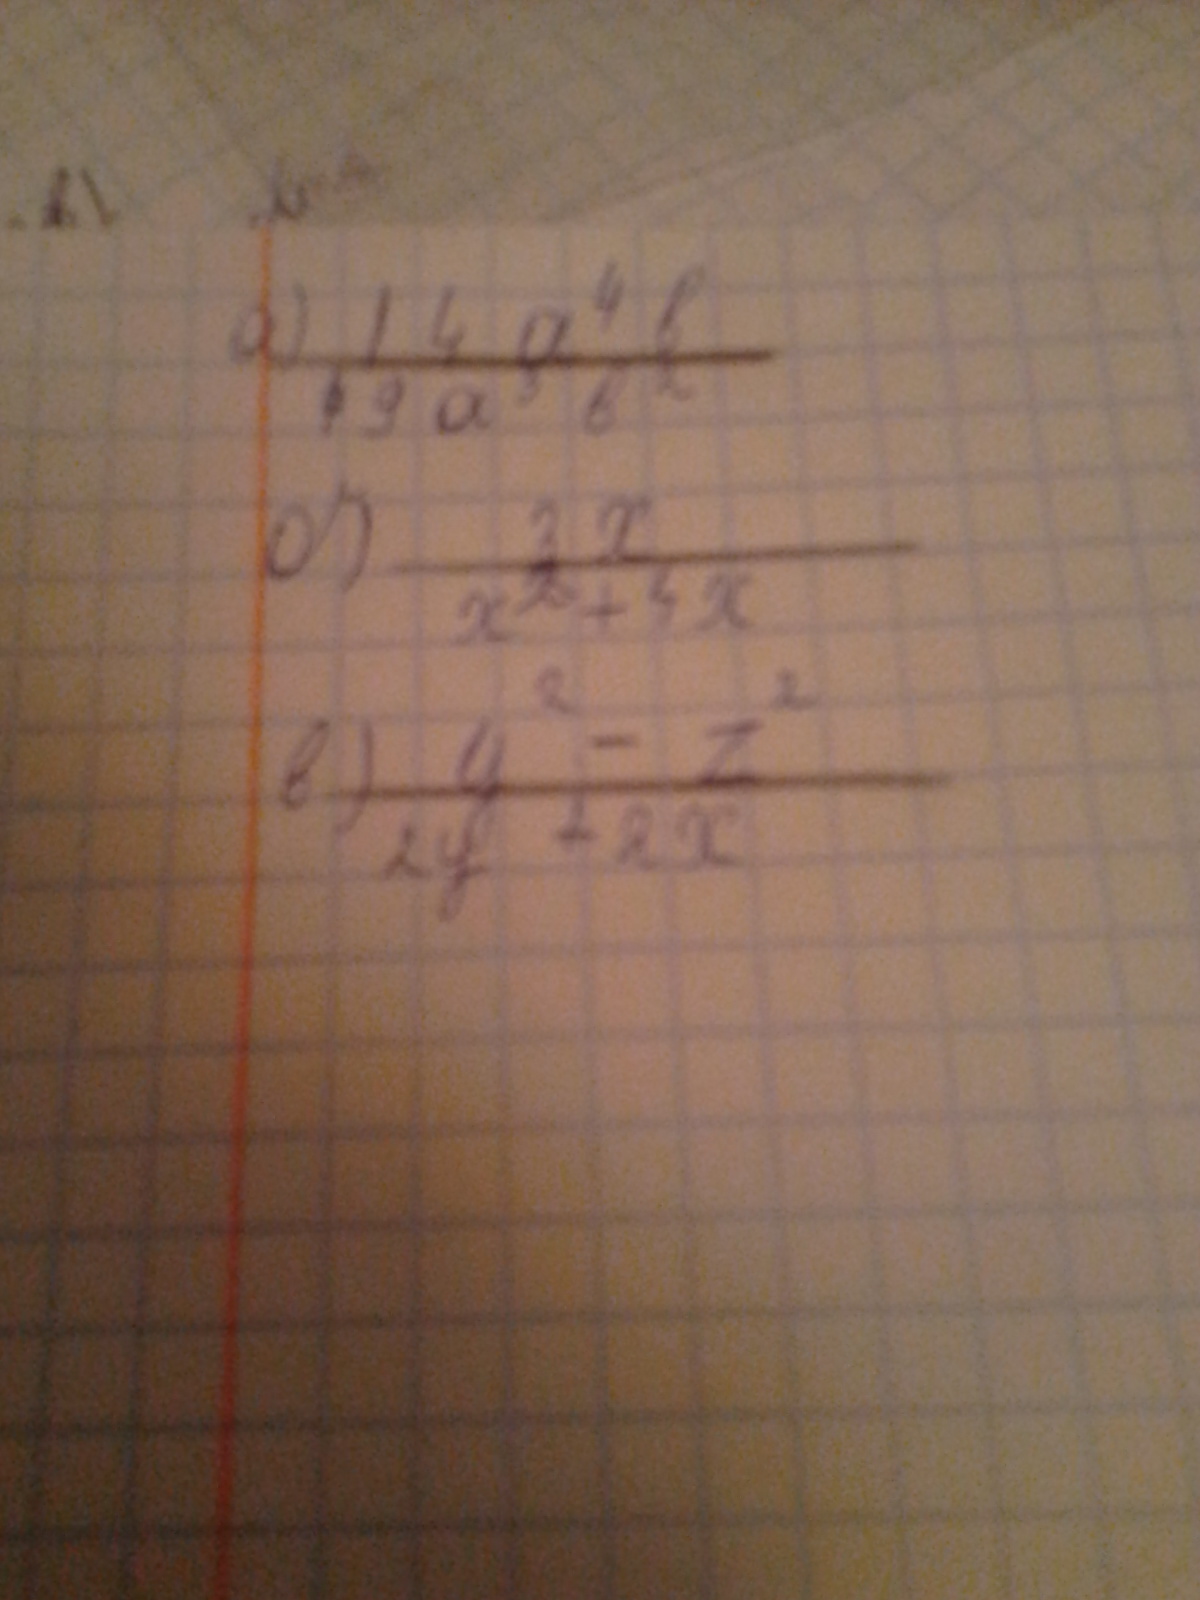 а) 14 a⁴ b
19 a³ b²
б) 3x
x² + 4x
в) y² - z²
2y + 2x